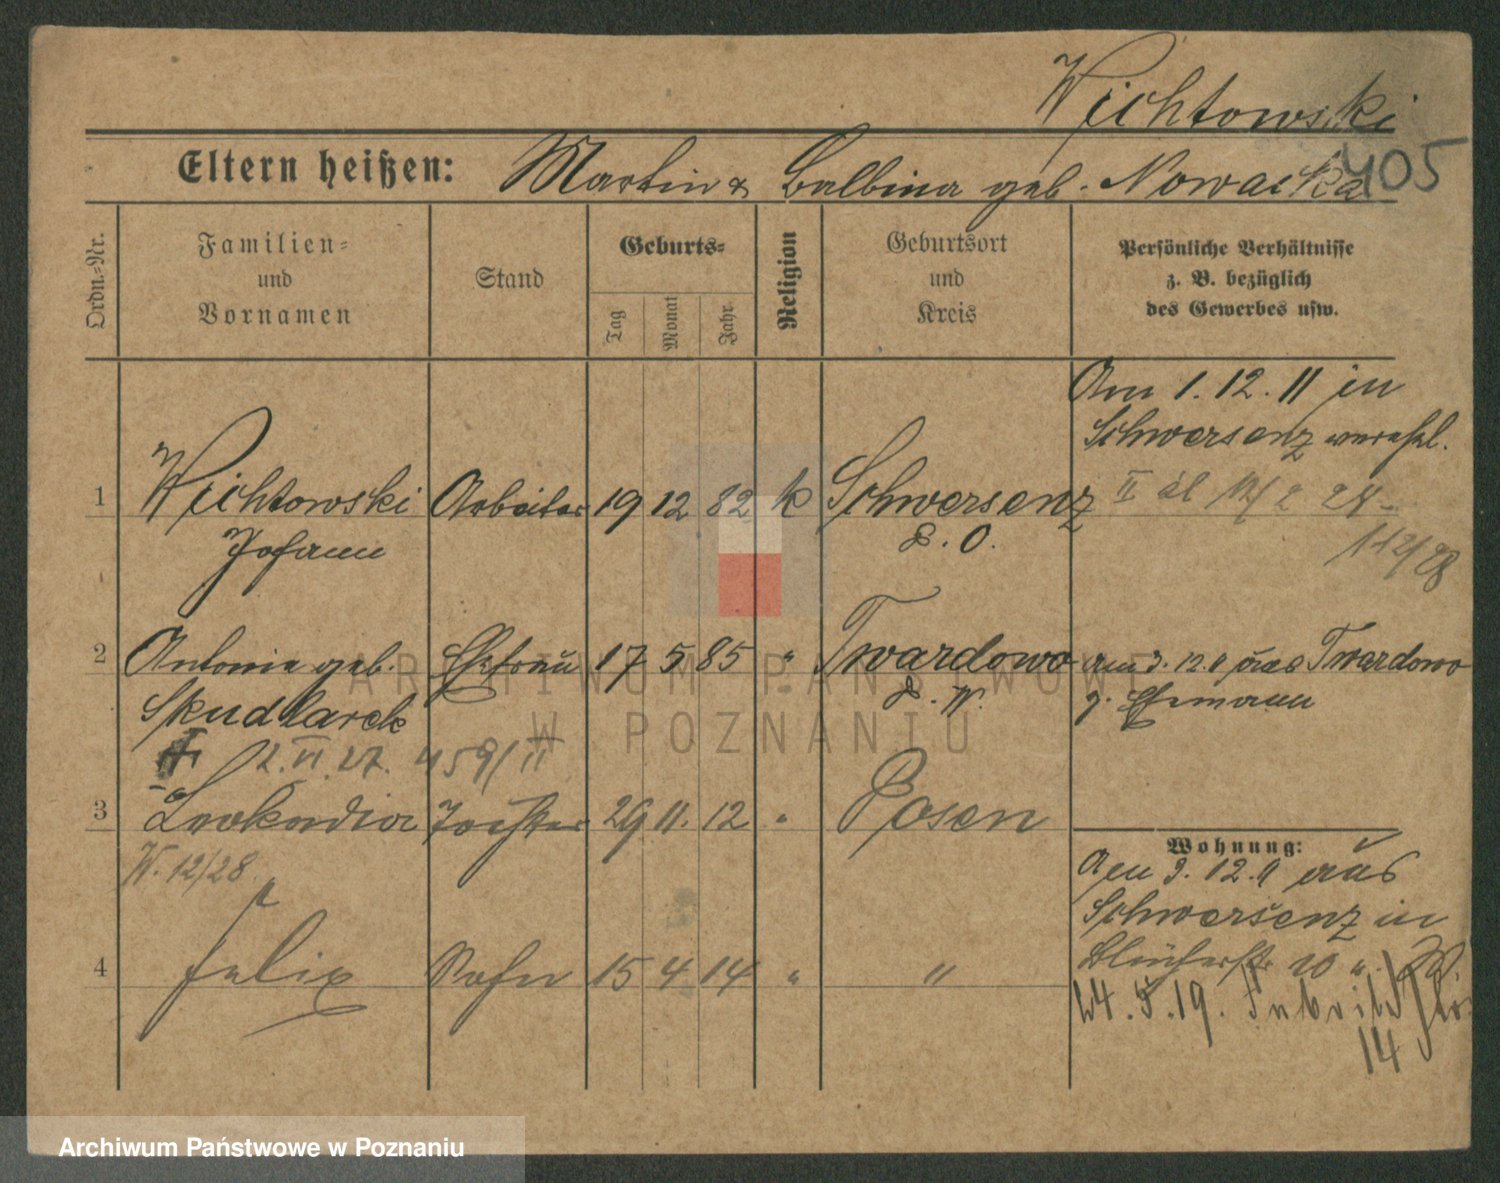 Wichtowski
405
Eltern heißen: Martin & Balbina geb. Nowacka
Ordn.-Nr.
Familien- und Vornamen
Stand
Geburts-
Tag
Monat
Jahr
Religion
Geburtsort und Kreis
Persönliche Verhältnisse
z. B. bezüglich
des Gewerbes usw.
Am 1. 12. 11 in
Schwersenz verehl.
1 Wichtowski Arbeiter 19 12 82 k Schwersenz
Johann P. O.
2 Antonie geb. Ehefrau 17 5 85 " Twardowo am 3. 12. 11 aus Twardowo
Skudlarek P. W. z. Ehemann
2. VI. 27. 459/II
3 Leokadia Tochter 29 11. 12 " Posen
W. 12/28
Wohnung:
Am 3. 12. 11 aus
Schwersenz in
4 Felix Sohn 15 4 14 " "
Blücherstr. 10
24. 5. 19.
14
ARCHIWUM PAŃSTWOWE
W POZNANIU
Archiwum Państwowe w Poznaniu